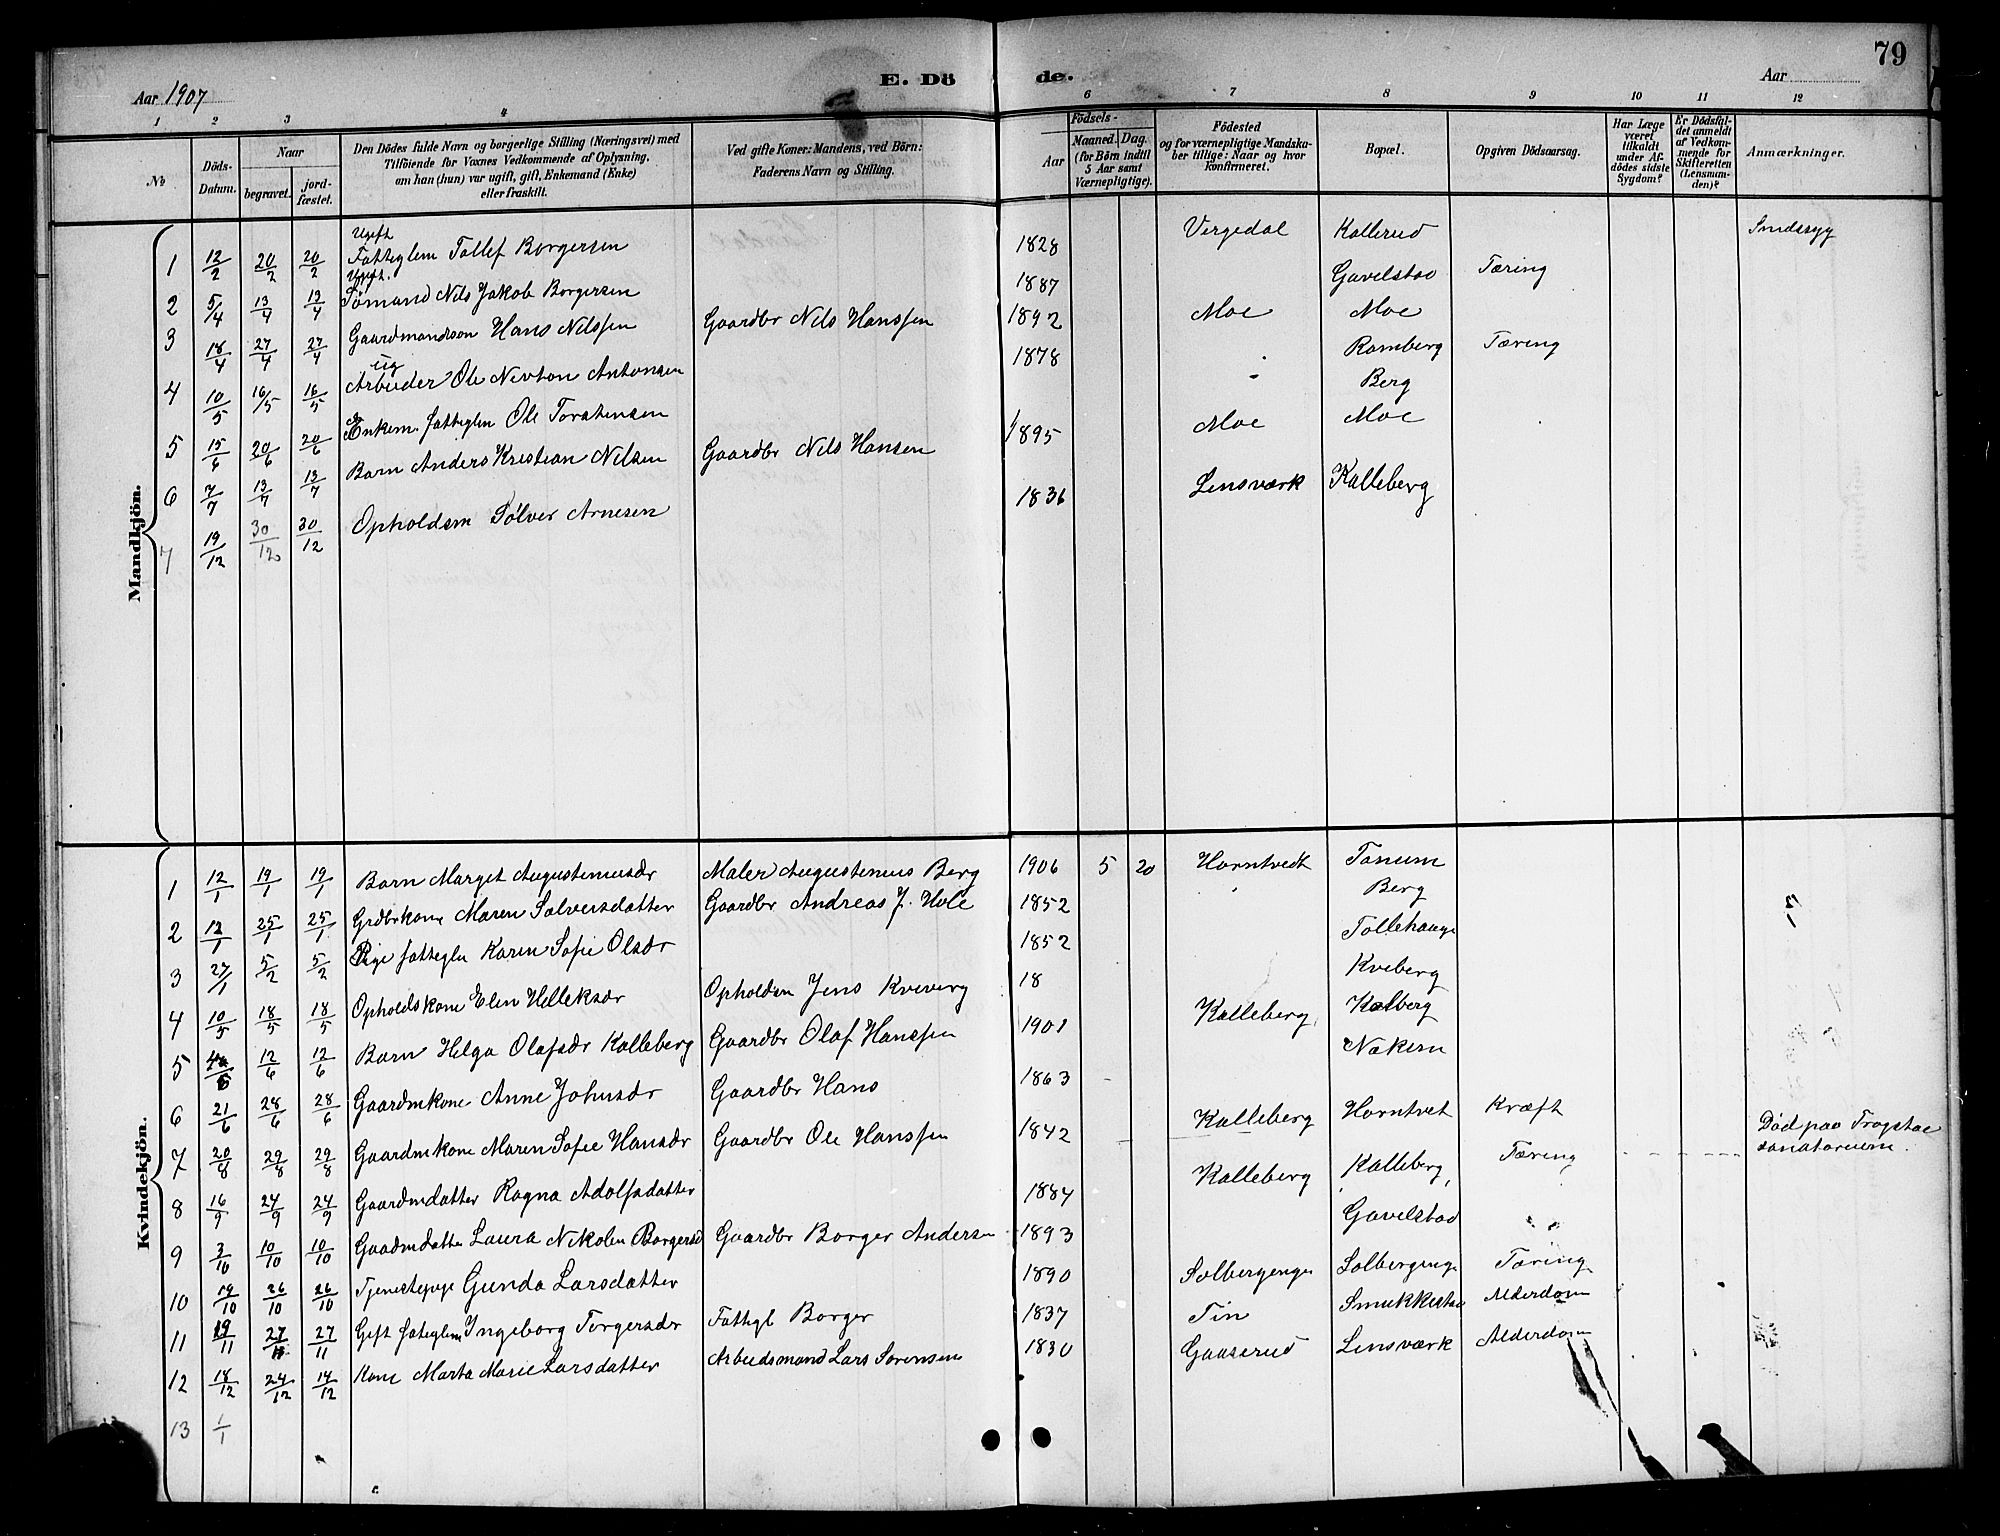 79
Aar 1907
E. Dö de.
Aar
1 2 3 4 6 7 8 9 10 11 12
No
Döds-Datum.
Naar begravet. jordfæstet.
Den Dödes fulde Navn og borgerlige Stilling (Næringsvei) med Tilföiende for Voxnes Vedkommende af Oplysning, om han (hun) var ugift, gift, Enkemand (Enke) eller fraskilt.
Ved gifte Koner: Mandens, ved Börn: Faderens Navn og Stilling.
Födsels-
Aar
Maaned. Dag.
(for Börn indtil 5 Aar samt Værnepligtige).
Födested og for værnepligtige Mandskaber tillige: Naar og hvor konfirmeret.
Bopæl.
Opgiven Dödsaarsag.
Har Læge været tilkaldt under Afdödes sidste Sygdom?
Er Dödsfaldet anmeldt af Vedkommende for Skifteretten (Lensmanden)?
Anmærkninger.
Mandkjön.
1 12/2 20/2 20/2 Ugift Fatteglem Tollef Borgersen 1828 Vergedal Kallerud Sindssyg
2 5/4 13/4 13/4 Ugift. Sømand Nils Jakob Borgersen 1887 Gavelstad Tæring
3 18/4 27/4 27/4 Gaardmandssøn Hans Nilssen Gaardbr Nils Hanssen 1892 Moe Moe
4 10/5 16/5 16/5 ug Arbeider Ole Nevton Antonsen 1878 Ramberg Tæring
5 15/6 20/6 20/6 Enkem. fatteglem Ole Torstensen Berg
6 7/7 13/7 13/7 Barn Anders Kristian Nilsen Gaardbr Nils Hansen 1895 Moe Moe
7 19/12 30/12 30/12 Opholdsm Sølver Arnesen 1836 Lensværk Kalleberg
Kvindekjön.
1 12/1 19/1 19/1 Barn Marget Augusteniusdr Maler Augustenius Berg 1906 5 20 Horntvedt Tanum
2 13/1 25/1 25/1 Grdbrkone Maren Sølversdatter Gaardbr Andreas J. Hvle 1852 Berg
3 27/1 5/2 5/2 Pige fatteglem Karen Sofie Olsdr 1852 Tollehauge
4 10/5 18/5 18/5 Opholdskone Elen Helleksdr Opholdsm Jens Kveverg 18 Kveberg
5 12/6 12/6 Barn Helga Olafsdr Kalleberg Gaardbr Olaf Hanssen 1901 Kalleberg Kalberg
6 21/6 28/6 28/6 Gaardmkone Anne Johnsdr Gaardbr Hans 1863 Nakem
7 20/8 29/8 29/8 Gaardmkone Maren Sofie Hansdr Gaardbr Ole Hanssen 1842 Kalleberg Horntvet Kræft
8 16/9 24/9 24/9 Gaardmdatter Ragna Adolfsdatter 1884 Kalleberg Kalleberg Tæring Død paa Trogstad sanatorium.
9 3/10 10/10 10/10 Gaadmdatter Laura Nikoline Borgersd Gaardbr Borger Andersen 1893 Gavelstad
10 19/10 26/10 26/10 Tjenestepige Gunda Larsdatter 1890 Solbergenge Solbergenge Tæring
11 19/11 27/11 27/11 Gift fatteglem Ingeborg Torgersdr Fattigl Borger 1837 Tin Smukkestad Alderdom
12 18/12 24/12 14/12 Kone Marta Marie Larsdatter Arbeidsmand Lars Sorensen 1830 Gaaserud Lensværk Alderdom
13 1/1